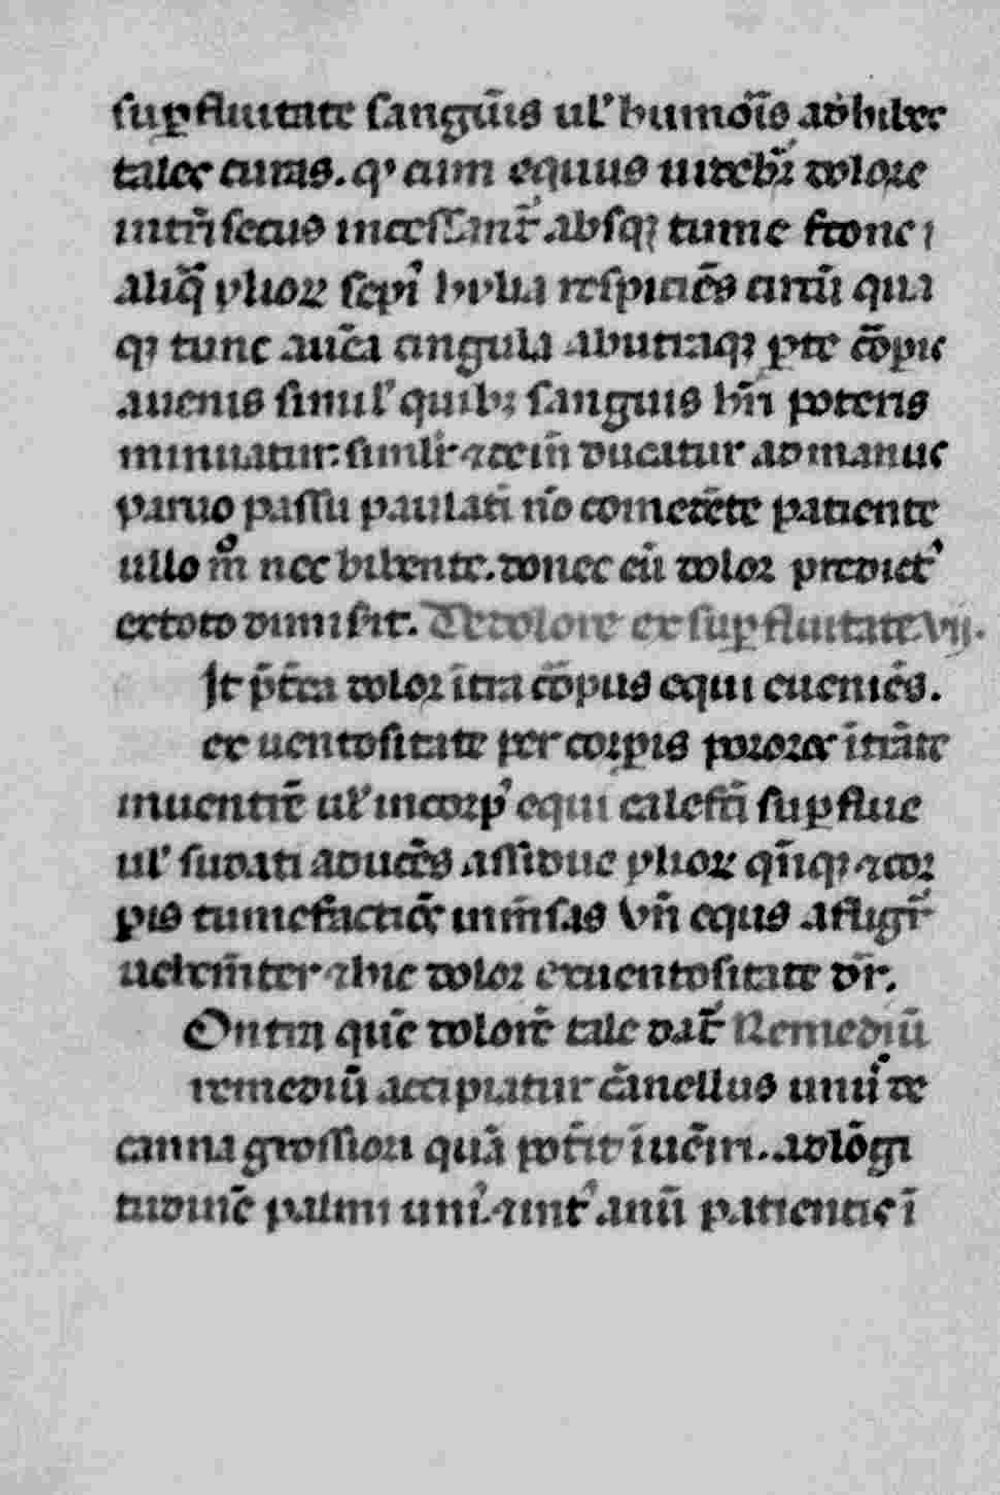 sup̱fluitate sanguīs ul' humōīs adhibet
tales curas. q' cum equus uidebr̄ dolore
intn̄secus incessant̄ absqꝫ tume fctione ı
aliq̄ ylioꝝ sepi' hylia respiciēs cinū qua
qꝫ tunc auēa cingula abutraqꝫ ꝑte cōpis
auenis simul' quibꝫ sanguis bn̄ poteris
minuatur: similr̄ ⁊ ceīn ducatur ad manus
paruo passu paulati nō comedēte patiente
ullo mͦ nec bibente. donec eū dolor predict'
ex toto dimisit. De dolore ex suꝑfluitate vij.
It p̄t̄ea dolor īt̄ra cōpus equi eueniēs.
ex uentositate per corꝑis poros īt̄rāte
in uentrē ul' in corp' equi calefc̄i suꝑflue
ul' sudati aducēs assidue ylioꝝ qn̄qꝫ ⁊ cor
ꝑis tumefactiōēs inm̄sas vn̄ equs afligr̄
uehem̄ter ⁊ hic dolor ex uentositate dr̄.
Ontra quē dolorē tale dat̄ Remediū
remediū accipiatur cānellus unus de
canna grossiori quā pot̄it īuēiri. ad lōgi
tudinē palmi uni'. ⁊ int' anū patientis ī